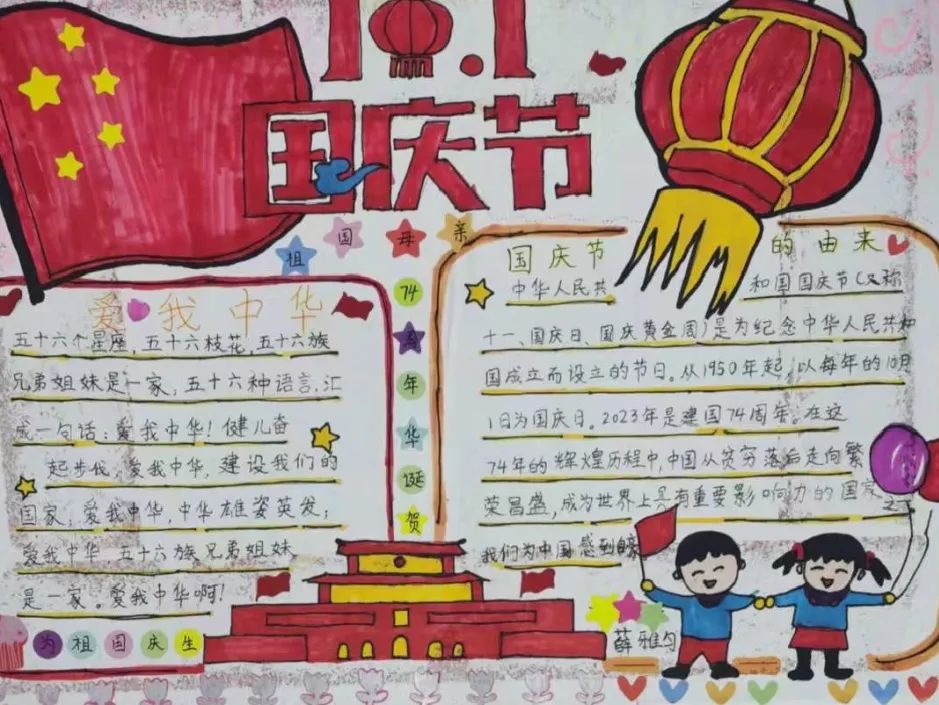 10.1
国庆节
祖国母亲
74
年
华
诞
贺
爱我中华
五十六个星座,五十六枝花,五十六族
兄弟姐妹是一家,五十六种语言,汇
成一句话:爱我中华!健儿奋
起步伐,爱我中华,建设我们的
国家,爱我中华,中华雄姿英发;
爱我中华 五十六族兄弟姐妹
是一家。爱我中华啊!
为祖国庆生
国庆节的由来
中华人民共和国国庆节(又称
十一、国庆日、国庆黄金周)是为纪念中华人民共和
国成立而设立的节日。从1950年起,以每年的10月
1日为国庆日。2023年是建国74周年。在这
74年的辉煌历程中,中国从贫穷落后走向繁
荣昌盛,成为世界上具有重要影响力的国家之一
我们为中国感到自豪
薛雅匀